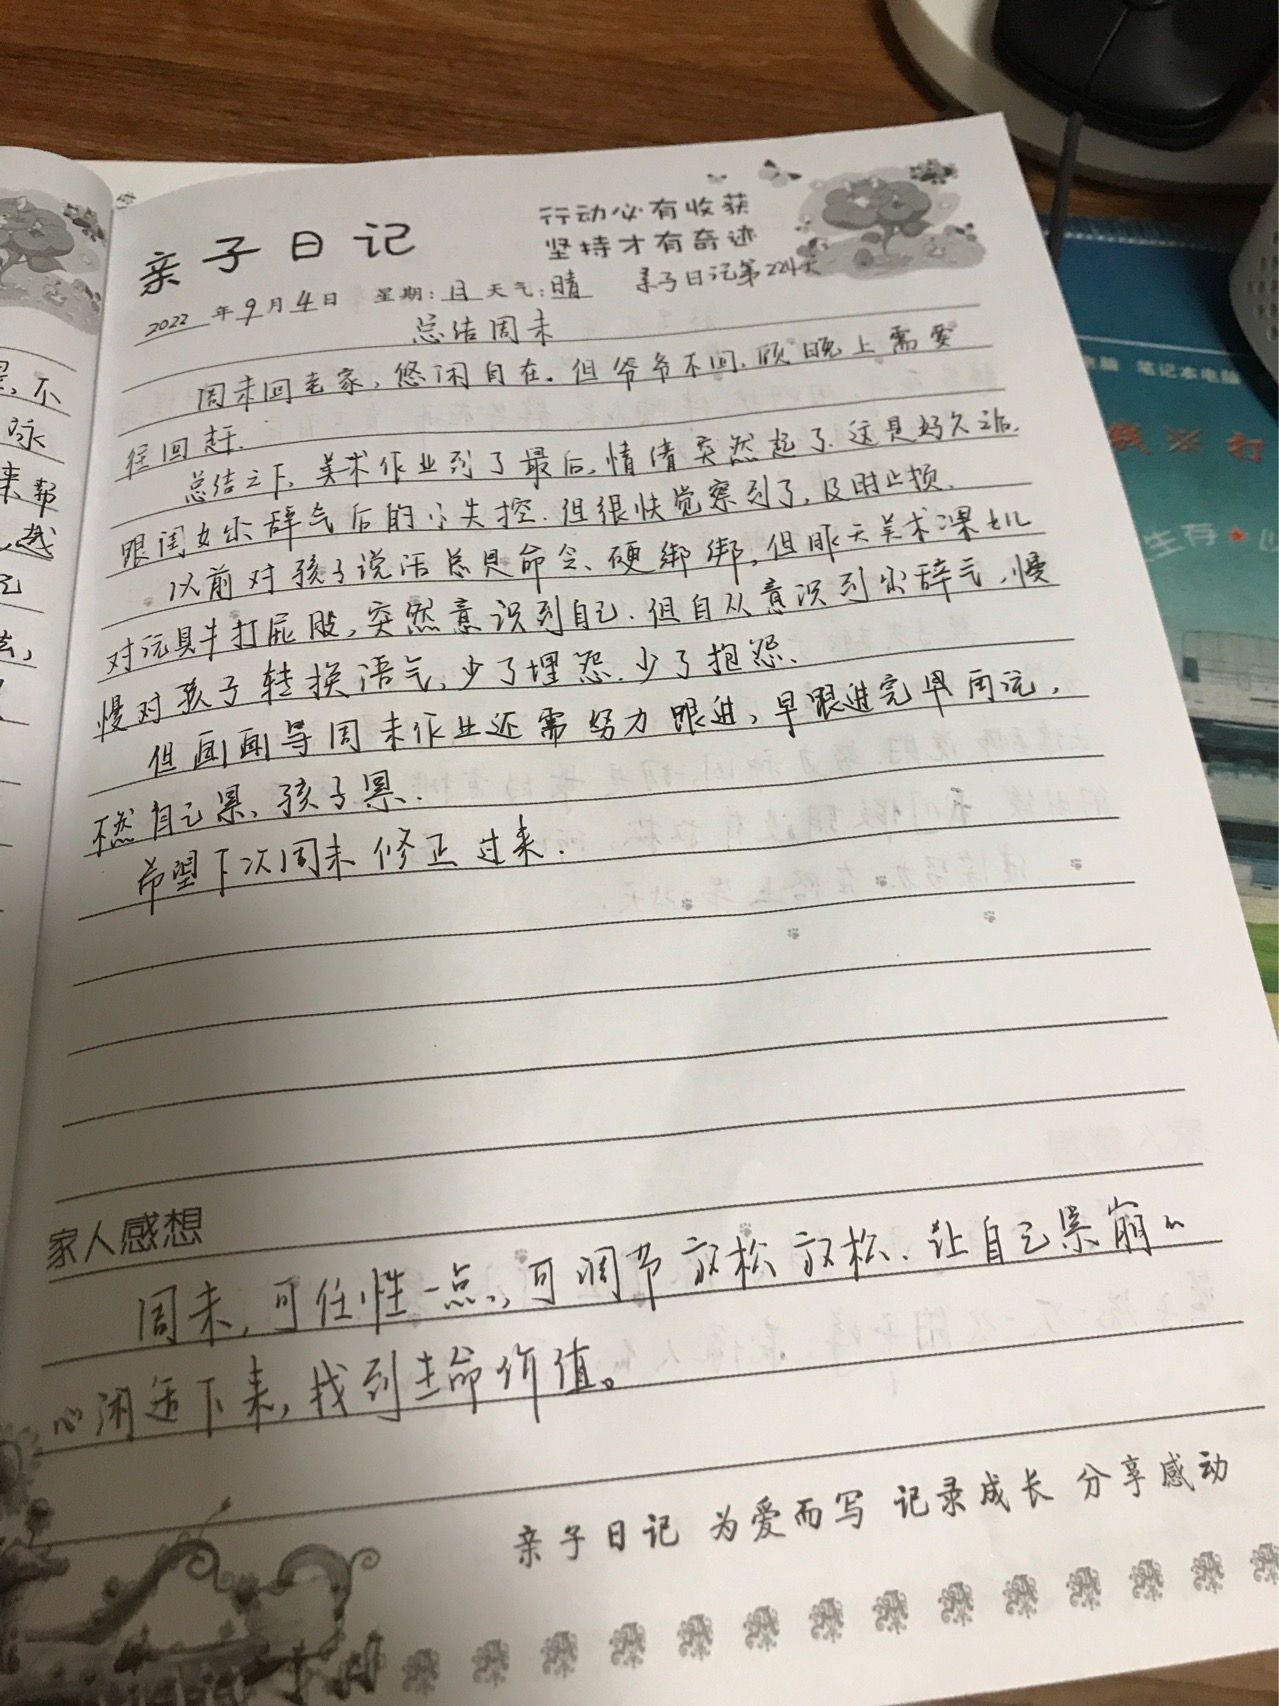 亲子日记
行动必有收获
坚持才有奇迹
2022年9月4日 星期:日 天气:晴 亲子日记第224天
总结周末
周末回老家，悠闲自在。但爷爷不回，顾晚上需要
往回赶.
总结之下，美术作业到了最后，情绪突然起了.这是好久之后.
跟闺女尔辞气后的小失控.但很快觉察到了，及时止损.
以前对孩子说话总是命令、硬绑绑，但昨天美术课
对玩具牛打屁股，突然意识到自己.但自从意识到尔辞气，慢
慢对孩子转换语气，少了埋怨.少了抱怨.
但画画等周末作业还需努力跟进，早跟进完早周玩，
不然自己累，孩子累.
希望下次周末修正过来.
家人感想
周末，可任性一点，可调节放松放松.让自己累崩的
心闲适下来，找到生命价值。
亲子日记 为爱而写 记录成长 分享感动
不
来帮
越
笔记本电脑
打
生存